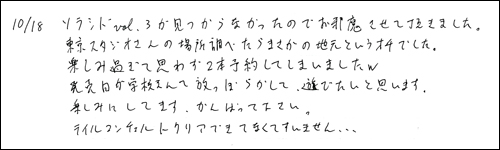 10/18 ソラシドvol.3が見つからなかったのでお邪魔させて頂きました。
東京スタジオさんの場所調べたらまさかの地元というオチでした。
楽しみ過ぎて思わず2本予約してしまいましたw
発売日が学校なんて放っぽらかして、遊びたいと思います。
楽しみにしてます。がんばって下さい。
テイルコンチェルトクリアできてなくてすいません...